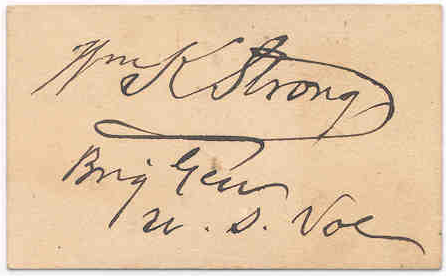 Wm K Strong
Brig Gen
U. S. Vol